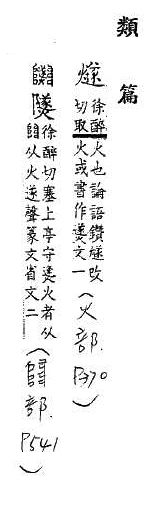 類篇
㸂徐醉切取火也論語鑽㸂改火或書作㷭文一(火部.P370)
䥙㒸徐醉切塞上亭守㷭火者从𨺅从火遂聲篆文省文二(𨺅部.P541)